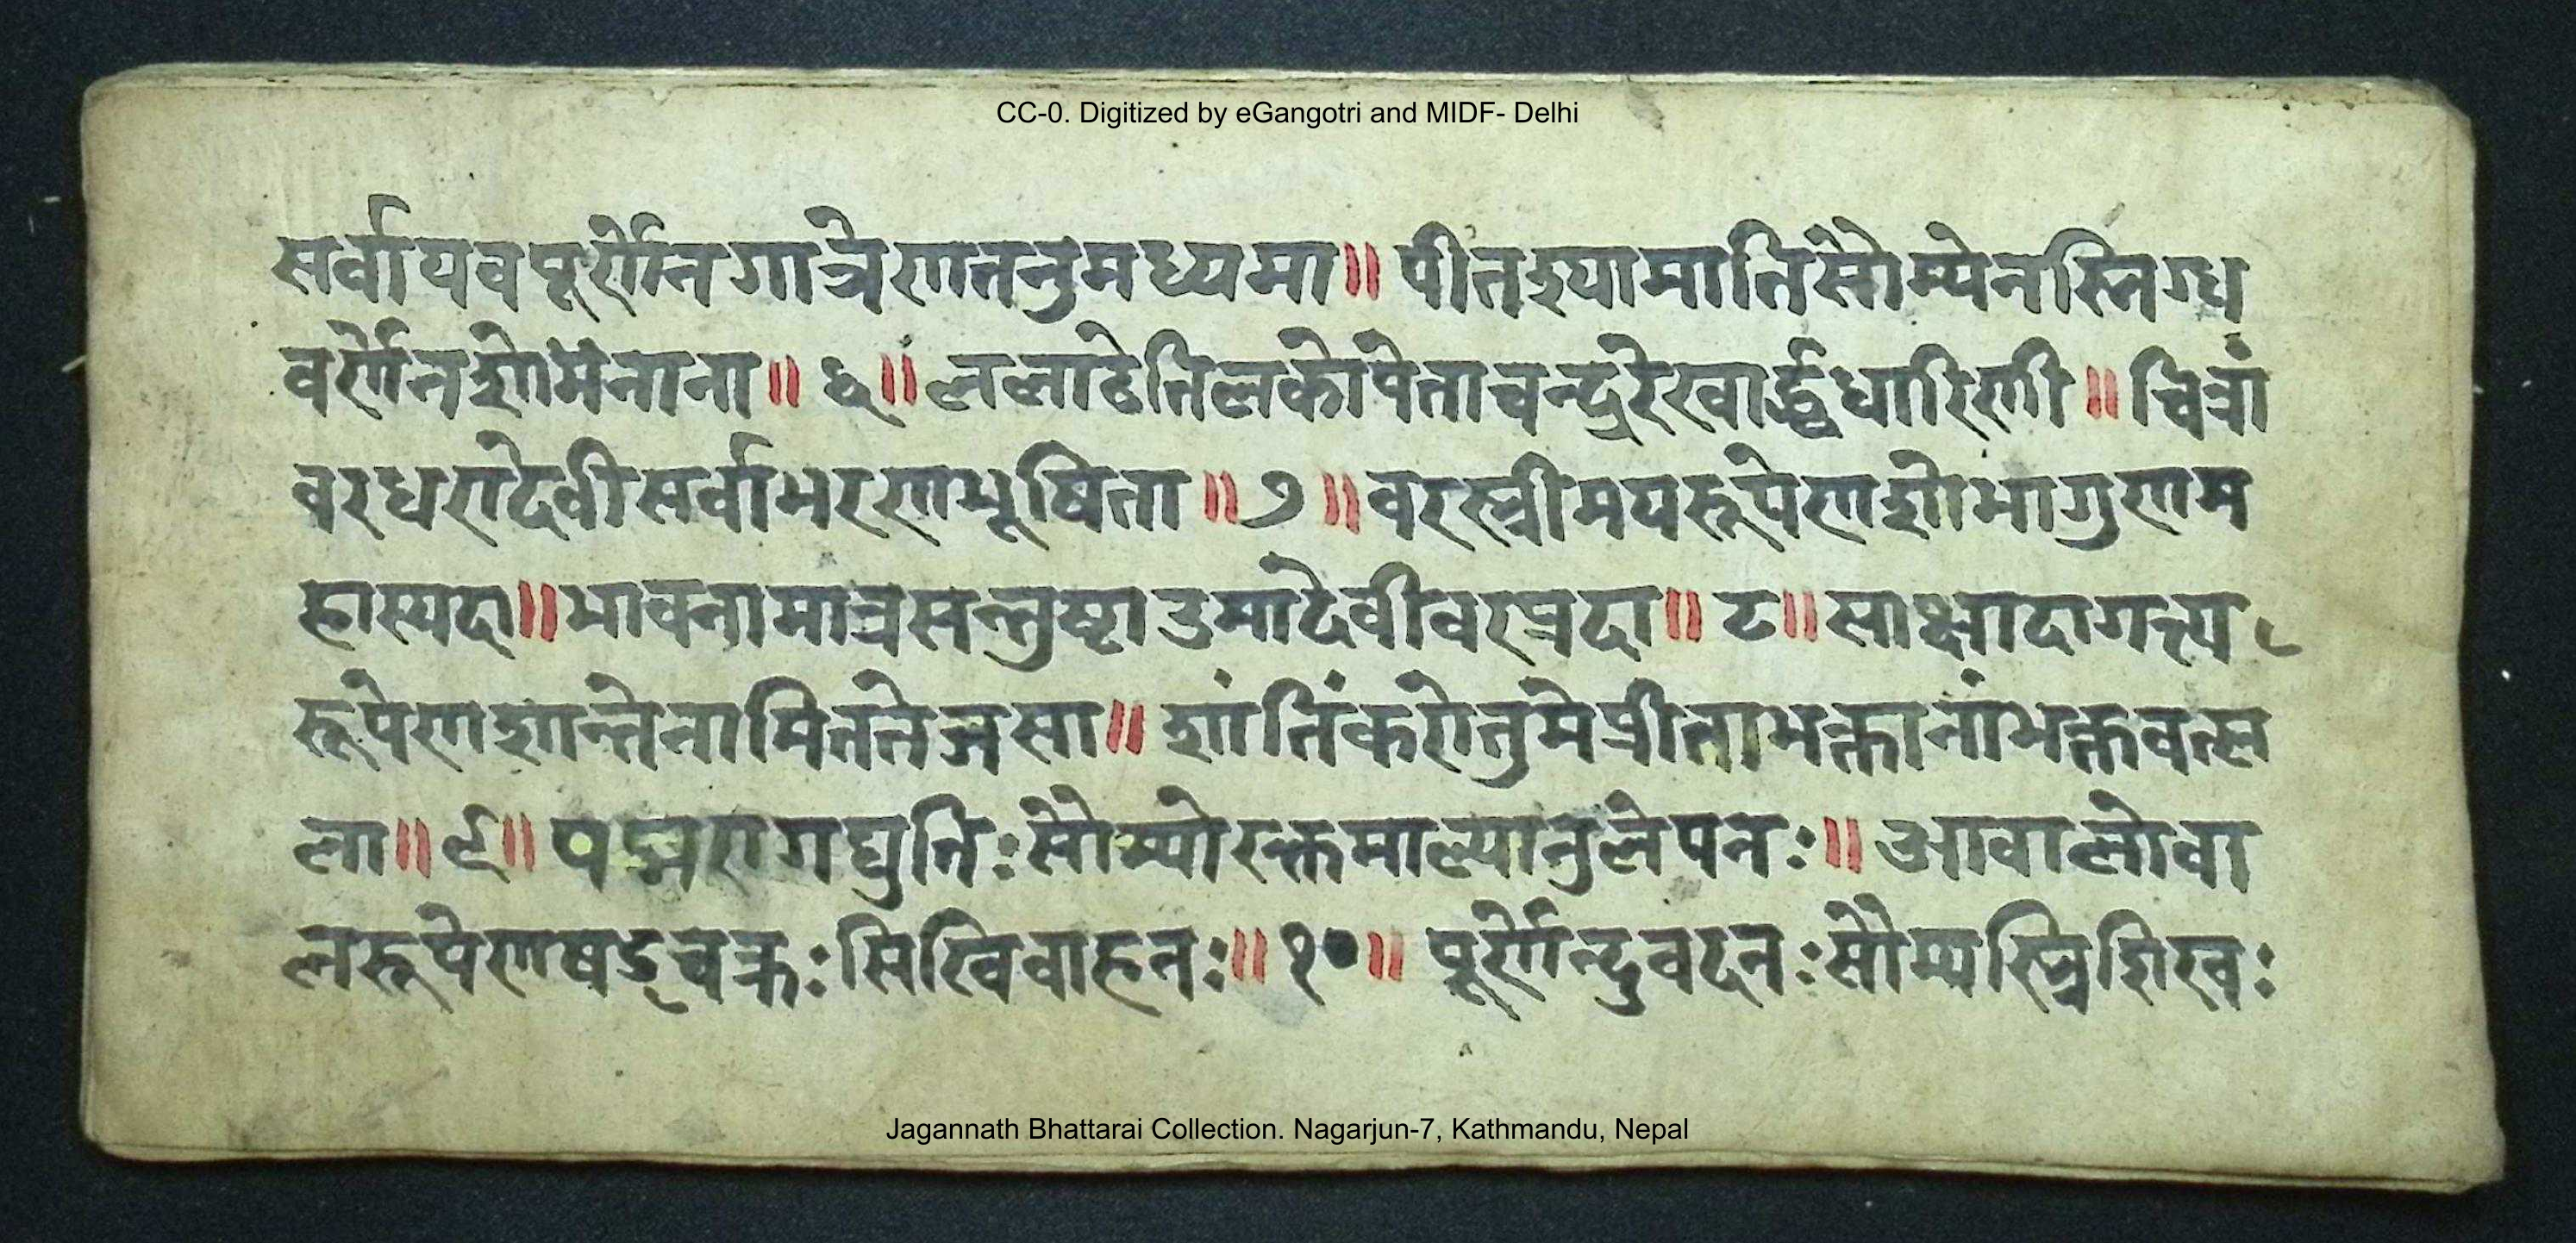 CC-0. Digitized by eGangotri and MIDF- Delhi
सर्वायवपूर्णेनगात्रेणतनुमध्यमा॥ पीतश्यामातिसौम्येनस्निग्ध
वर्णेनशोभनाना॥ ६॥ ललाटेतिलकोपेताचन्द्ररेखार्द्धधारिणी॥ चित्रां
वरधरादेवीसर्वाभरणभूषिता॥ ७॥ वरस्त्रीमयरूपेणशोभागुणम
हास्पदा॥ भावनामात्रसन्तुष्टाउमादेवीवरप्रदा॥ ८॥ साक्षादागत्य
रूपेणशान्तेनामिततेजसा॥ शांतिंकरोतुमेप्रीताभक्तानांभक्तवत्स
ला॥ ९॥ पद्मरागद्युतिःसौम्योरक्तमाल्यानुलेपनः॥ आवालोवा
लरूपेणषड्वक्त्रःसिखिवाहनः॥ १०॥ पूर्णेन्दुवदनःसौम्यस्त्रिशिखः
Jagannath Bhattarai Collection. Nagarjun-7, Kathmandu, Nepal